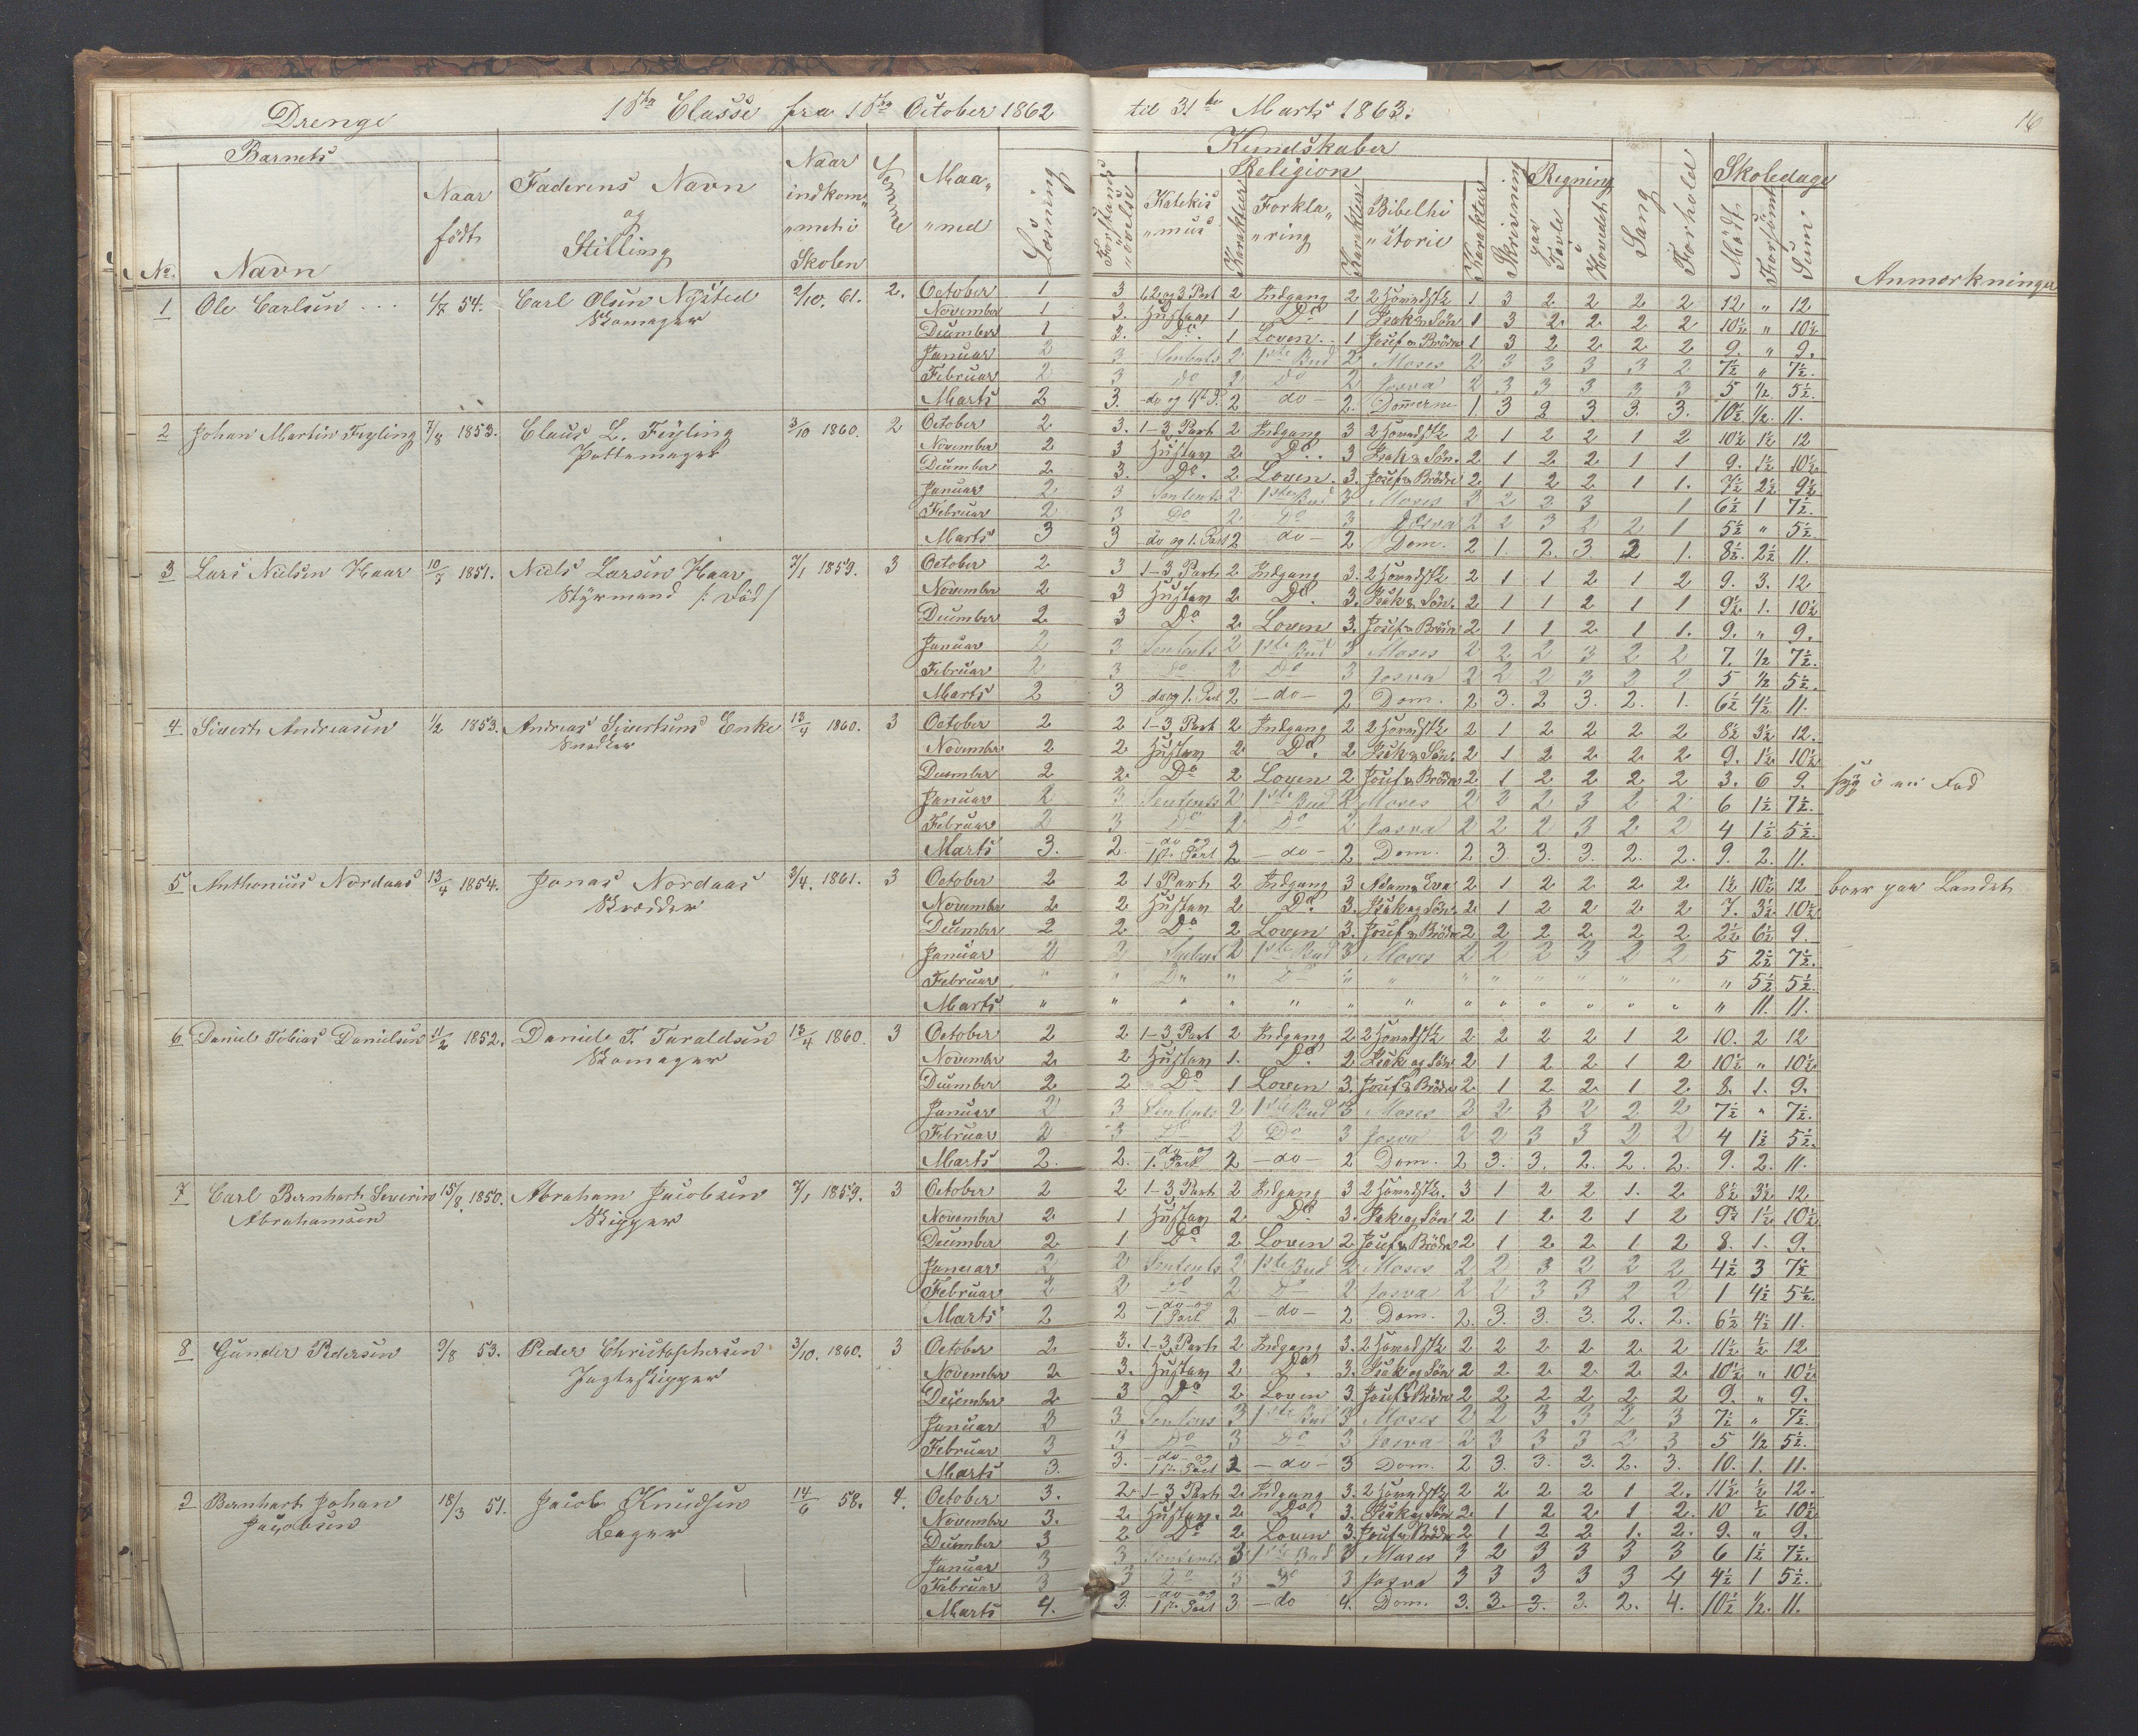 Drenge 1ste Classe fra 1ste October 1862 til 31te Marts 1863. 16
Barnets Kundskaber
No. Navn Naar født Faderens Navn og Stilling Naar indkom„ „met i Skolen Maa„ „ned Læsning Forstands „øvelse Religion Katekis „mus Karakter Forkla„ „ring Karakter Bibelhi „storie Karakter Skrivning Regning paa Tavle i Hovedet Sang Forhold Skoledage Mødt Forsømt Sum Anmærkninger
1 Ole Carlsen 54. Carl Olsen Nysted 2/10. 61. 2. October 1 3 2 Indgang 2 1 3 2 2 2 2 12 „ 12
Skomager November 1 3. Hustav 1 Do 1 Isak & Søn 1 3 2 2 2 2 10½ „ 10½
December 1 3. Do. 1 Loven 1 Josef & Brødre 1 3 2 2 2 2 9. „ 9.
Januar 2 3 2 1ste Bud 2 Moses 2 3 3 3 3 2 7½ „ 7½.
Februar 2 3 do 2 Do 2 Josva 2 3 3 3 3 3 5 ½ 5½
Marts 2 3. 2 do 2. Dommerne 1. 3 2 3. 3. 3. 10½ ½. 11.
2 Johan Martin Feyling 7/8 1853. Claus L. Feyling 3/10 1860. 2 October 2 3. 1-3 Part 2 Indgang 3 2 1 2 2 1 2 10½ 1½ 12
Pottemager November 2 3 Hustav 2 Do. 3 Isak & Søn. 2 1 2 2 1 1 9. 1½ 10½
December 2 3. Do. 2 Loven. 3. Josef & Brødre 2 1 2 2 1 1. 7½ 2½ 9½
Januar 2 3 2 1ste Bud 3 Moses 2 2 3 3 1 6½ 1 7½
Februar 2 3 Do 2 Do 3 Josva 2 2 3 2 2 1 5½ „ 5½
Marts 3 3 do og 1. Part 2 do 2 Dom. 2 1. 2. 3. 2 1. 8½. 2½ 11.
3 Lars Nielsen Haar 10/7 1851. Niels Larsen Haar 7/1 1859. 3 October 2 3 1-3 Part 2 Indgang 3. 2 1 1 2 1 2 9. 3. 12
Styrmand /: Død / November 2 3 Hustav 2 Do. 3. Isak & Søn. 2 1 1 2 1 1 9½ 1. 10½
December 2 3 Do 2 Loven 3. Josef & Brødre 2 1 1 2 1 1. 9. „ 9.
Januar 2 3 2 1ste Bud 3 Moses 2 2 2 3 2 2 7. ½ 7½
Februar 2 3 Do 2 Do 3 Josva 2 2 2 3 2 2 5 ½ 5½.
Marts 2 3 do og 1. Part 2 do 2 Dom. 2 3. 2 3. 2. 1. 6½ 4½ 11.
4 Sivert Andreasen ½ 1853. Andreas Sivertsens Enke 13/4 1860. 3 October 2 2 1-3 Part 2 Indgang 2 2 1 2 2 2 2 8½ 3½ 12.
Snedker November 2 2 Hustav 2 Do. 2 Isak & Søn. 2 1 2 2 2 2 9. 1½ 10½
December 2 2. Do 2 Loven 2 Josef & Brødre 2 1 2 2 2 2 3. 6 9. syg i en Fod
Januar 2 3 2 1ste Bud 2 Moses 2 2 2 3 2 2 6 1½ 7½.
Februar 2 3 Do 2 Do 2 Josva 2 2 2 3 2 2 4 1½ 5½.
Marts 3. 2. do og 1ste Part 2 do 2 Dom. 2 3. 3. 3. 2. 2. 9. 2. 11.
5 Anthonius Nordaas 13/4 1854. Jonas Nordaas 3/4. 1861. 3 October 2 2 1 Part 2 Indgang 3 Adam & Eva 2 1 2 2 2 2 1½ 10½ 12 boer paa Landet
Skrædder November 2 2 Hustav 2 Do. 3. Isak og Søn. 2 1 2 2 2 2 7. 3½ 10½
December 2 2 Do 2 Loven 3. Josef & Brødre 2 2 2 2 2 2 2½ 6½ 9.
Januar 2 2 2 1ste Bud 3 Moses 2 2 2 3 2 2 5 2½ 7½.
Februar „ „ „ „ „ „ „ „ „ „ „ „ „ 5½ 5½.
Marts „ „ „ „ „ „ „ „ „ „ „ „ „ „ 11. 11.
6 Daniele Tobias Danielsen 11/2 1852. Daniele T. Taraldsen 13/4 1860. 3 October 2 2 1-3 Part 2 Indgang 2 2 2 2 2 1 2 10. 2 12
Skomager November 2 2 Hustav 1. Do. 2 Isak og Søn 2 1 2 2 1 2 10½ „ 10½
December 2 2 Do 1 Loven 3. Josef & Brødre 2 1 2 2 1 2 8. 1. 9.
Januar 2 3 2 1ste Bud 3 Moses 2 2 3 2 2 2 7½ „ 7½.
Februar 2 3 Do 2 Do 3 Josva 2 2 3 3 2 2 4 1½ 5½.
Marts 2. 2. do og 1. Part 2 do 2 Dom. 2 3. 3. 2. 2. 2. 9. 2. 11.
7 Carl Bernhart Severin 15/8. 1850. Abraham Jacobsen 7/1 1859. 3 October 2 2 1-3 Part 2 Indgang 3 3 1 2 2 1. 2 8½ 3½ 12
Abrahamsen Skipper November 2 1 Hustav 2 Do. 3. Isak og Søn 2 1 2 2 1 2 9½ 1½ 10½
December 2 1 Do 2 Loven 2 Josef & Brødre 2 1 2 2 1 2 8. 1. 9.
Januar 2 2 2 1ste Bud 2 Moses 2 2 3 2 2 2 4½ 3 7½
Februar 2 2 Do 2 Do 2 Josva 2 2 3 3 2 2 1 4½ 5½.
Marts 2 2 do og 1 Part 2 do 2 Dom. 2. 3. 3. 3. 2. 2. 6½ 4½ 11.
8 Gunder Pedersen 9/8 53. Peder Christophersen 3/10. 1860. 3 October 2 3. 1-3 Part 2 Indgang 3. 2 2 2 2 2 2 11½ ½ 12
Jagteskipper November 2 3. Hustav 2 Do. 3. Isak og Søn 2 2 2 2 2 2 10½ „ 10½
December 2 3 Do 2 Loven 3. Josef & Brødre 2 2 2 2 2 2 9. „ 9.
Januar 3 3 3 1ste Bud 3 Moses 2 2 3 3 2 3 7½ „ 7½.
Februar 3 3 Do 3 Do 3 Josva 2 3 3 3 2 3 5 ½ 5½.
Marts 3. 3. do og 1ste Part 2 do 3 Dom. 2 3. 3. 3. 2. 3. 10. 1. 11.
9 Bernhart Johan 18/3 51. Jacob Knudsen 14/6 58. 4. October 3. 2. 1-3 Part 2 Indgang 3. 2 2 2 2 1 2. 11½ ½ 12.
Jacobsen Bager November 3. 2 Hustav. 2 Do. 3. Isak og Søn 2. 1 2 2 1 2. 10 ½ 10½
December 3 2 Do 2 Loven 3. Josef & Brødre 2 1 2 2 1. 2. 9. „ 9.
Januar 3 3 3 1ste Bud 3 Moses 3 2 3 3 3 3 6 1½ 7½.
Februar 3 3 Do 3 Do 3 Josva 3 3 3 3 3 4 4½ 1 5½.
Marts 4. 3. do og 1ste Part 3 do 4. Dom. 3. 3. 3. 3. 2. 4. 10½ ½. 11.